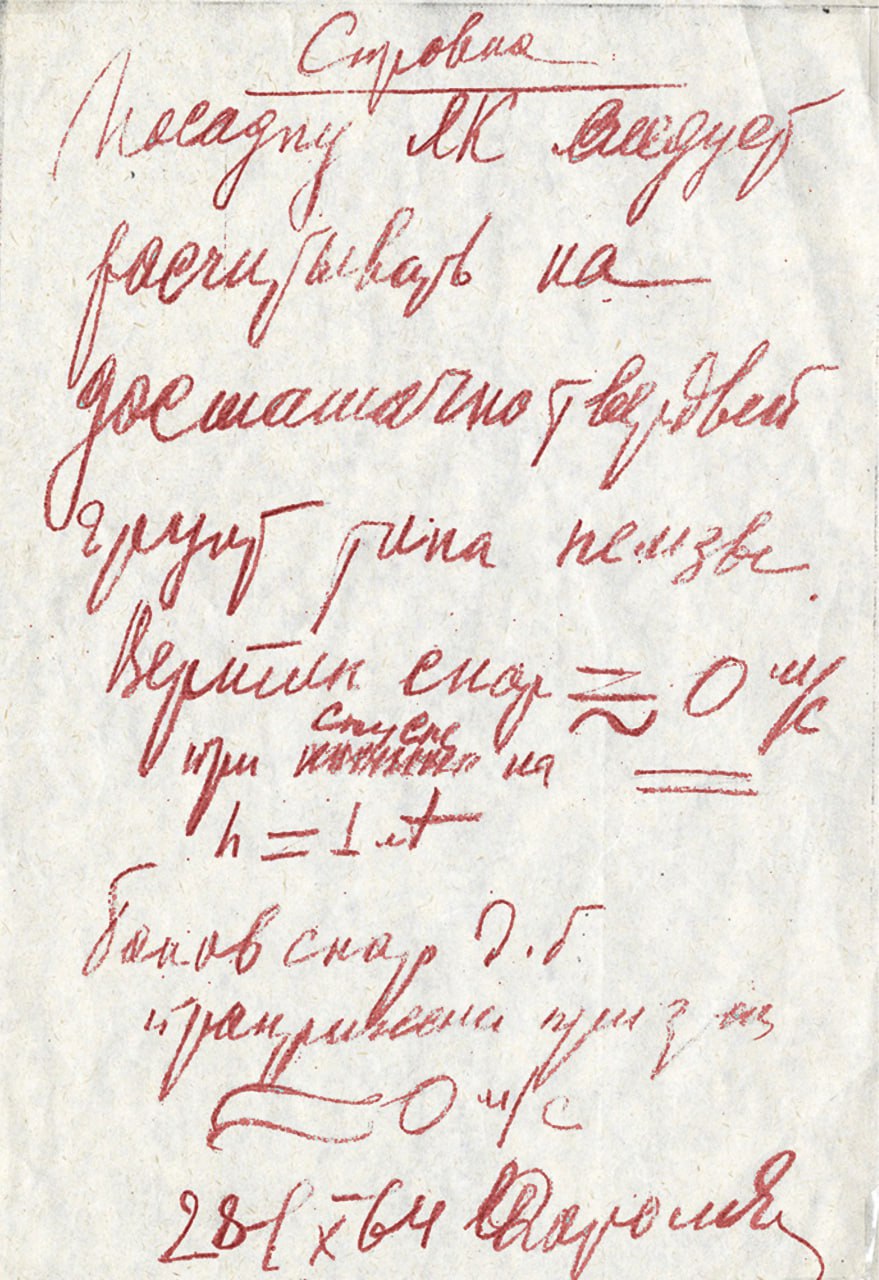 Справка
Посадку ЛК следует
расчитывать на
достаточно твердый
грунт типа пемзы.
Вертик скор ≈ 0 м/с
при спуске на
h = 1 м
Боков скор д.б
≈ 0 м/с
28/X 64 Королев